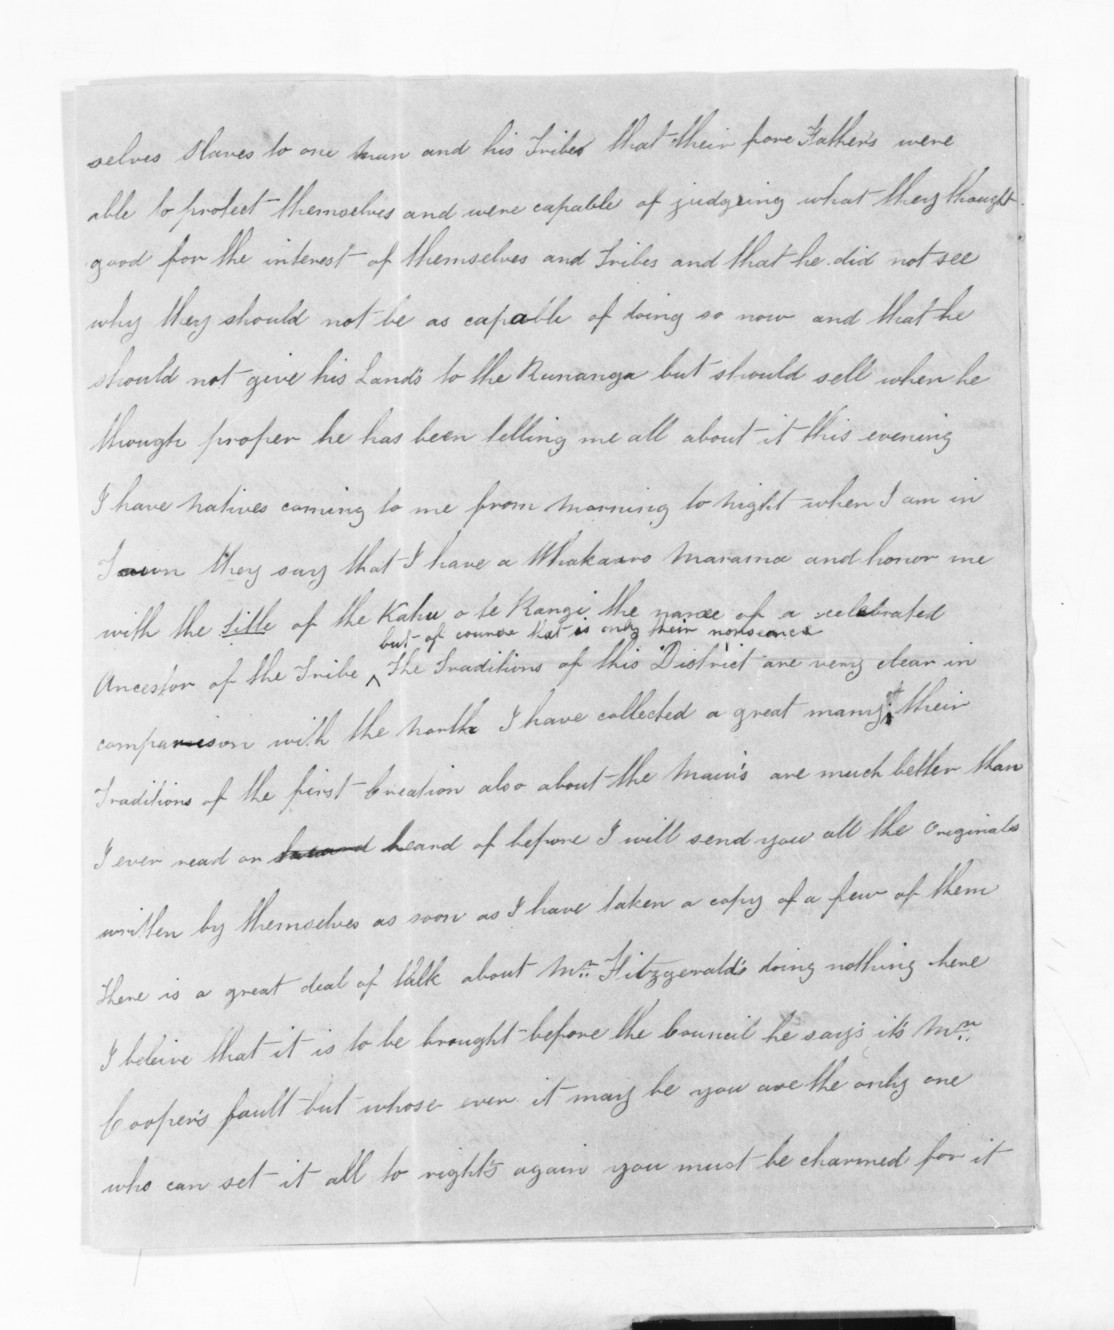 selves Slaves to one man and his Tribes that their fore Father's were
able to protect themselves and were capable of judgeing what they thought
good for the interest of themselves and Tribes and that he did not see
why they should not be as capable of doing so now and that he
should not give his Land's to the Runanga but should sell when he
though proper he has been telling me all about it this evening
I have natives coming to me from morning to night when I am in
Town they say that I have a Whakaaro Marama and honor me
with the title of the Kahu o te Rangi the name of a celebrated
but of course that is only their nonsence
Ancestor of the Tribe ^ The Traditions of this District are very clear in
comparison with the north I have collected a great many their
Traditions of the first Creation also about the Maui's are much better than
I ever read or heard heard of before I will send you all the Originals
written by themselves as soon as I have taken a copy of a few of them
There is a great deal of talk about Mr. Fitzgerald's doing nothing here
I beleive that it is to be brought before the Council he say's it's Mr.
Cooper's fault but whose ever it may be you are the only one
who can set it all to right's again you must be charmed for it